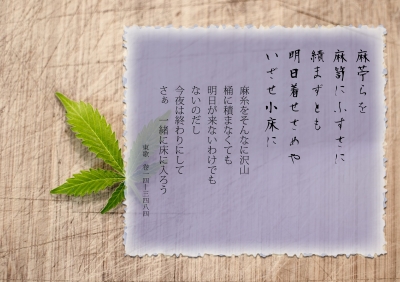 麻苧らを
麻笥にふすさに
績まずとも
明日着せさめや
いざせ小床に
麻糸をそんなに沢山
桶に積まなくても
明日が来ないわけでも
ないのだし
今夜は終わりにして
さぁ 一緒に床に入ろう
東歌 巻一四ー三四八四